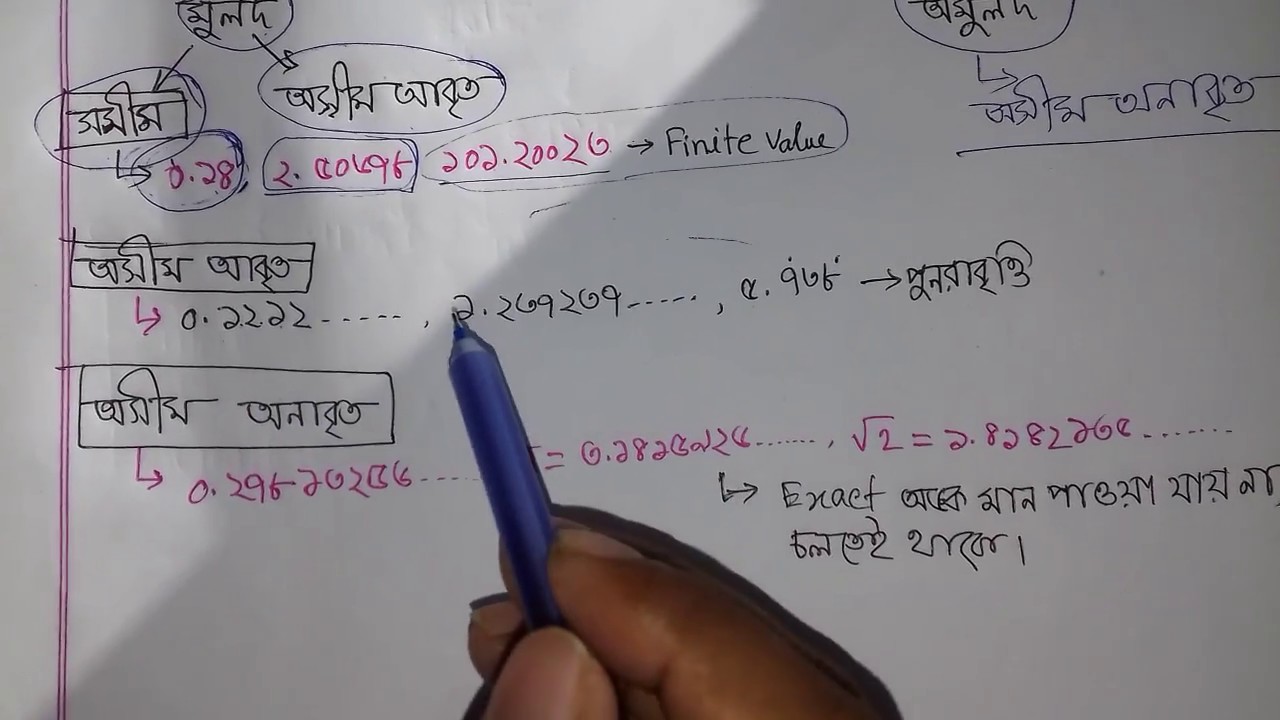 মূলদ অমূলদ
সসীম অসীম আবৃত অসীম অনাবৃত
০.২৪, ২.৫০৬৭৮ ১০১.২০০২৩ → Finite Value
অসীম আবৃত
০.১২১২ ------ , ১.২৩৭২৩৭ ----- , ৫.৭̇৩৮̇ → পুনরাবৃত্তি
অসীম অনাবৃত
০.২৭৮১৩২৫৬ ----- = ৩.১৪১৫৯২৬....... , √2 = ১.৪১৪২১৩৫.......
Exact অঙ্কে মান পাওয়া যায় না
চলতেই থাকে।